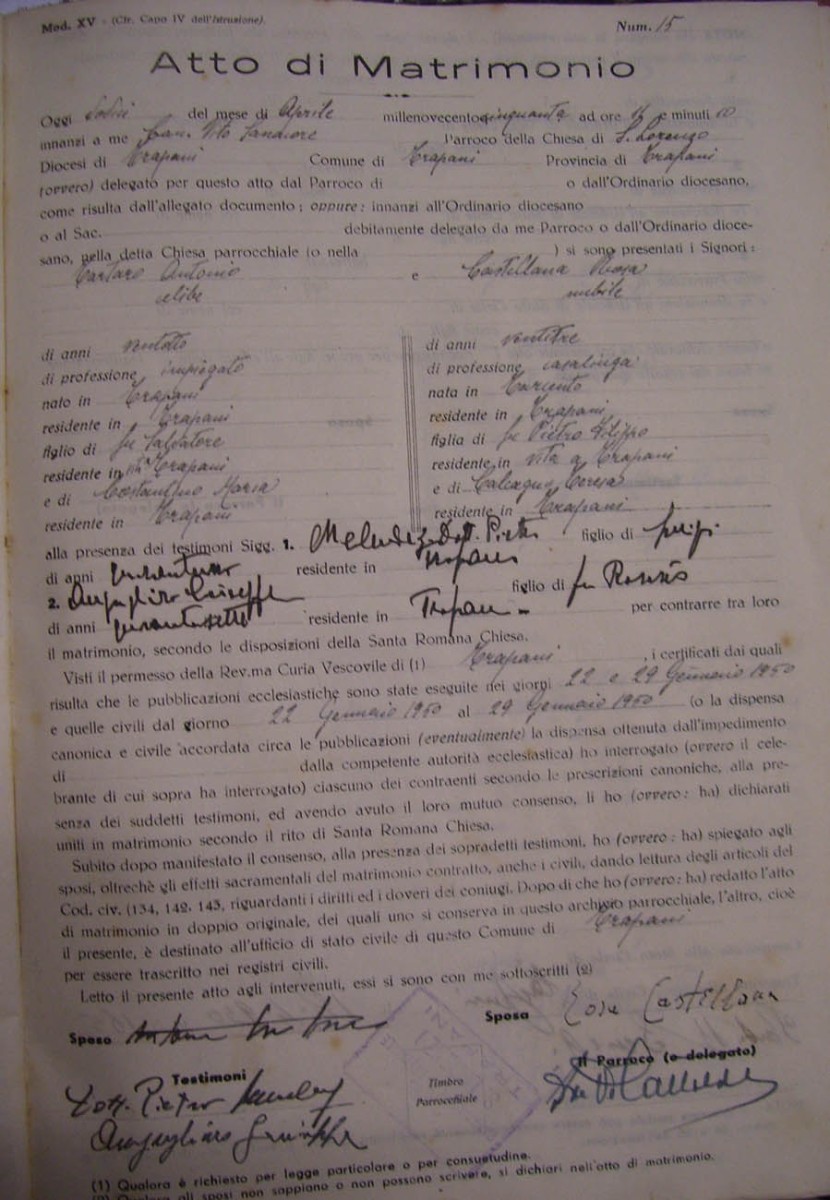 Mod. XV - (Cfr. Capo IV dell'Istruzione).
Num. 15
Atto di Matrimonio
Oggi dodici del mese di Aprile millenovecento cinquanta ad ore 11 e minuti 00
innanzi a me Can. Vito Parroco della Chiesa di S. Lorenzo
Diocesi di Trapani Comune di Trapani Provincia di Trapani
(ovvero) delegato per questo atto dal Parroco di o dall'Ordinario diocesano,
come risulta dall'allegato documento; oppure: innanzi all'Ordinario diocesano
o al Sac. debitamente delegato da me Parroco o dall'Ordinario dioce-
sano, nella detta Chiesa parrocchiale (o nella ) si sono presentati i Signori:
Tartaro Antonio e Castellana Rosa
celibe nubile
di anni ventotto
di professione impiegato
nato in Trapani
residente in Trapani
figlio di fu Salvatore
residente in Trapani
e di Costantino Maria
residente in Trapani
di anni ventitre
di professione casalinga
nata in
residente in Trapani
figlia di fu Pietro Filippo
residente in vita a Trapani
e di Calcagno Teresa
residente in Trapani
alla presenza dei testimoni Sigg. 1. Dott. Pietro figlio di Luigi
di anni residente in Trapani
2. Giuseppe figlio di fu
di anni quarantasette residente in Trapani per contrarre tra loro
il matrimonio, secondo le disposizioni della Santa Romana Chiesa.
Visti il permesso della Rev.ma Curia Vescovile di (1) Trapani, i certificati dai quali
risulta che le pubblicazioni ecclesiastiche sono state eseguite nei giorni 22 e 29 Gennaio 1950
e quelle civili dal giorno 22 Gennaio 1950 al 29 Gennaio 1950 (o la dispensa
canonica e civile accordata circa le pubblicazioni (eventualmente) la dispensa ottenuta dall'impedimento
di dalla competente autorità ecclesiastica) ho interrogato (ovvero il cele-
brante di cui sopra ha interrogato) ciascuno dei contraenti secondo le prescrizioni canoniche, alla pre-
senza dei suddetti testimoni, ed avendo avuto il loro mutuo consenso, li ho (ovvero: ha) dichiarati
uniti in matrimonio secondo il rito di Santa Romana Chiesa.
Subito dopo manifestato il consenso, alla presenza dei sopradetti testimoni, ho (ovvero: ha) spiegato agli
sposi, oltrechè gli effetti sacramentali del matrimonio contratto, anche i civili, dando lettura degli articoli del
Cod. civ. (134, 142, 143, riguardanti i diritti ed i doveri dei coniugi. Dopo di che ho (ovvero: ha) redatto l'atto
di matrimonio in doppio originale, dei quali uno si conserva in questo archivio parrocchiale, l'altro, cioè
il presente, è destinato all'ufficio di stato civile di questo Comune di Trapani
per essere trascritto nei registri civili.
Letto il presente atto agli intervenuti, essi si sono con me sottoscritti (2)
Sposo Antonio Tartaro
Sposa Rosa Castellana
Testimoni
Dott. Pietro
Giuseppe
Timbro
Parrocchiale
Il Parroco (o delegato)
(1) Qualora è richiesto per legge particolare o per consuetudine.
(2) Qualora gli sposi non sappiano o non possano scrivere, si dichiari nell'atto di matrimonio.